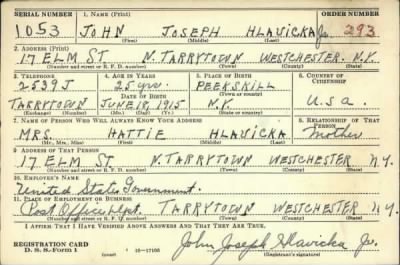 SERIAL NUMBER 1. NAME (Print) ORDER NUMBER
1053 JOHN JOSEPH HLAVICKA Jr. 293
(First) (Middle) (Last)
2. ADDRESS (Print)
17 ELM ST N. TARRYTOWN WESTCHESTER N.Y.
(Number and street or R. F. D. number) (Town) (County) (State)
3. TELEPHONE 4. AGE IN YEARS 5. PLACE OF BIRTH 6. COUNTRY OF CITIZENSHIP
2539J 25 yrs. PEEKSKILL
DATE OF BIRTH (Town or county)
TARRYTOWN JUNE, 18, 1915 N.Y. U.S.a.
(Exchange) (Number) (Mo.) (Day) (Yr.) (State or country)
7. NAME OF PERSON WHO WILL ALWAYS KNOW YOUR ADDRESS 8. RELATIONSHIP OF THAT PERSON
MRS. HATTIE HLAVICKA Mother
(Mr., Mrs., Miss) (First) (Middle) (Last)
9. ADDRESS OF THAT PERSON
17 ELM ST N. TARRYTOWN WESTCHESTER N.Y.
(Number and street or R. F. D. number) (Town) (County) (State)
10. EMPLOYER'S NAME
United States Government.
11. PLACE OF EMPLOYMENT OR BUSINESS
Post Office Dept. TARRYTOWN WESTCHESTER N.Y.
(Number and street or R. F. D. number) (Town) (County) (State)
I AFFIRM THAT I HAVE VERIFIED ABOVE ANSWERS AND THAT THEY ARE TRUE.
REGISTRATION CARD
D. S. S. Form 1 16-17105 John Joseph Hlavicka Jr.
(over) (Registrant's signature)